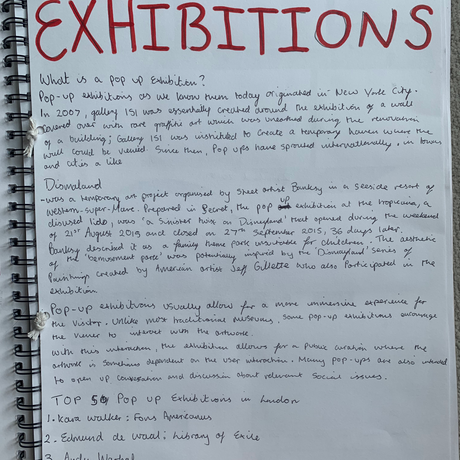 EXHIBITIONS
What is a pop up exhibition?
Pop-up exhibitions as we know them today originated in New York City.
In 2007, gallery 151 was essentially created around the exhibition of a wall
covered over with rare graffiti art which was unearthed during the renovation
of a building; Gallery 151 was instituted to create a temporary haven where the
wall could be viewed. Since then, Pop ups have sprouted internationally, in towns
and cities a like
Dismaland
-was a temporary art project organised by street artist Banksy in a seaside resort of
Western-super-Mare. Prepared in secret, the pop up exhibition at the tropicana, a
disused lido, was 'a sinister twist on Disneyland' that opened during the weekend
of 21st August 2015 and closed on 27th September 2015, 36 days later.
Banksy described it as a family theme park unsuitable for children. The aesthetic
of the 'bemusement park' was potentially inspired by the 'Dismayland' series of
paintings created by American artist Jeff Gillette who also participated in the
exhibition.
Pop-up exhibitions usually allow for a more immersive experience for
the visitor. Unlike most traditional museums, some pop-up exhibitions encourage
the viewer to interact with the artwork.
With this interaction, the exhibition allows for a public curation where the
artwork is sometimes dependent on the user interaction. Many pop-ups are also intended
to open up conversation and discussion about relevant social issues.
TOP Pop up Exhibitions in London
1. Kara Walker: Fons Americanus
2. Edmund de Waal: Library of Exile
3. Andy Warhol